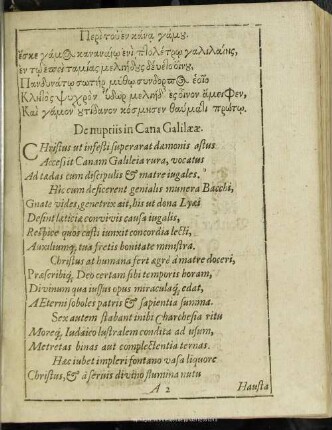 Περὶ τοῦ ἐν κάνᾳ γάμου.
ἔσκε γάμος καναναίῳ ἐνὶ πτολέτρῳ γαλιλαίης,
ἐν τῷ
Πανδυνάτῳ σωτὴρ μύθῳ
Κλεινὸς ψυχρὸν ὕδωρ μελιηδὲς ἐς οἶνον ἄμειψεν,
Καὶ γάμον κόσμησεν θαύματι πρώτῳ.
De nuptiis in Cana Galilææ.
CHristus ut infesti superarat dæmonis astus
Accessit Canam Galileia rura, vocatus
Ad tædas cum discipulis & matre iugales.
Hic cum deficerent genialis munera Bacchi,
Gnate vides, genetrix ait, his ut dona Lyæi
Desint lætitiæ convivis causa iugalis,
Respice quos casti iunxit concordia lecti,
Auxiliumq; tua fretis bonitate ministra.
Christus at humana fert ægrè à matre doceri,
Præscribiq; Deo certam sibi temporis horam,
Divinum qua iussus opus miraculaq; edat,
AEterni soboles patris & sapientia summa.
Sex autem stabant inibi Charchesia ritu
Moreq; Iudaico lustralem condita ad usum,
Metretas binas aut complectentia ternas.
Hæc iubet impleri fontano vasa liquore
Christus, & à servis divino flumina nutu
A 2 Hausta